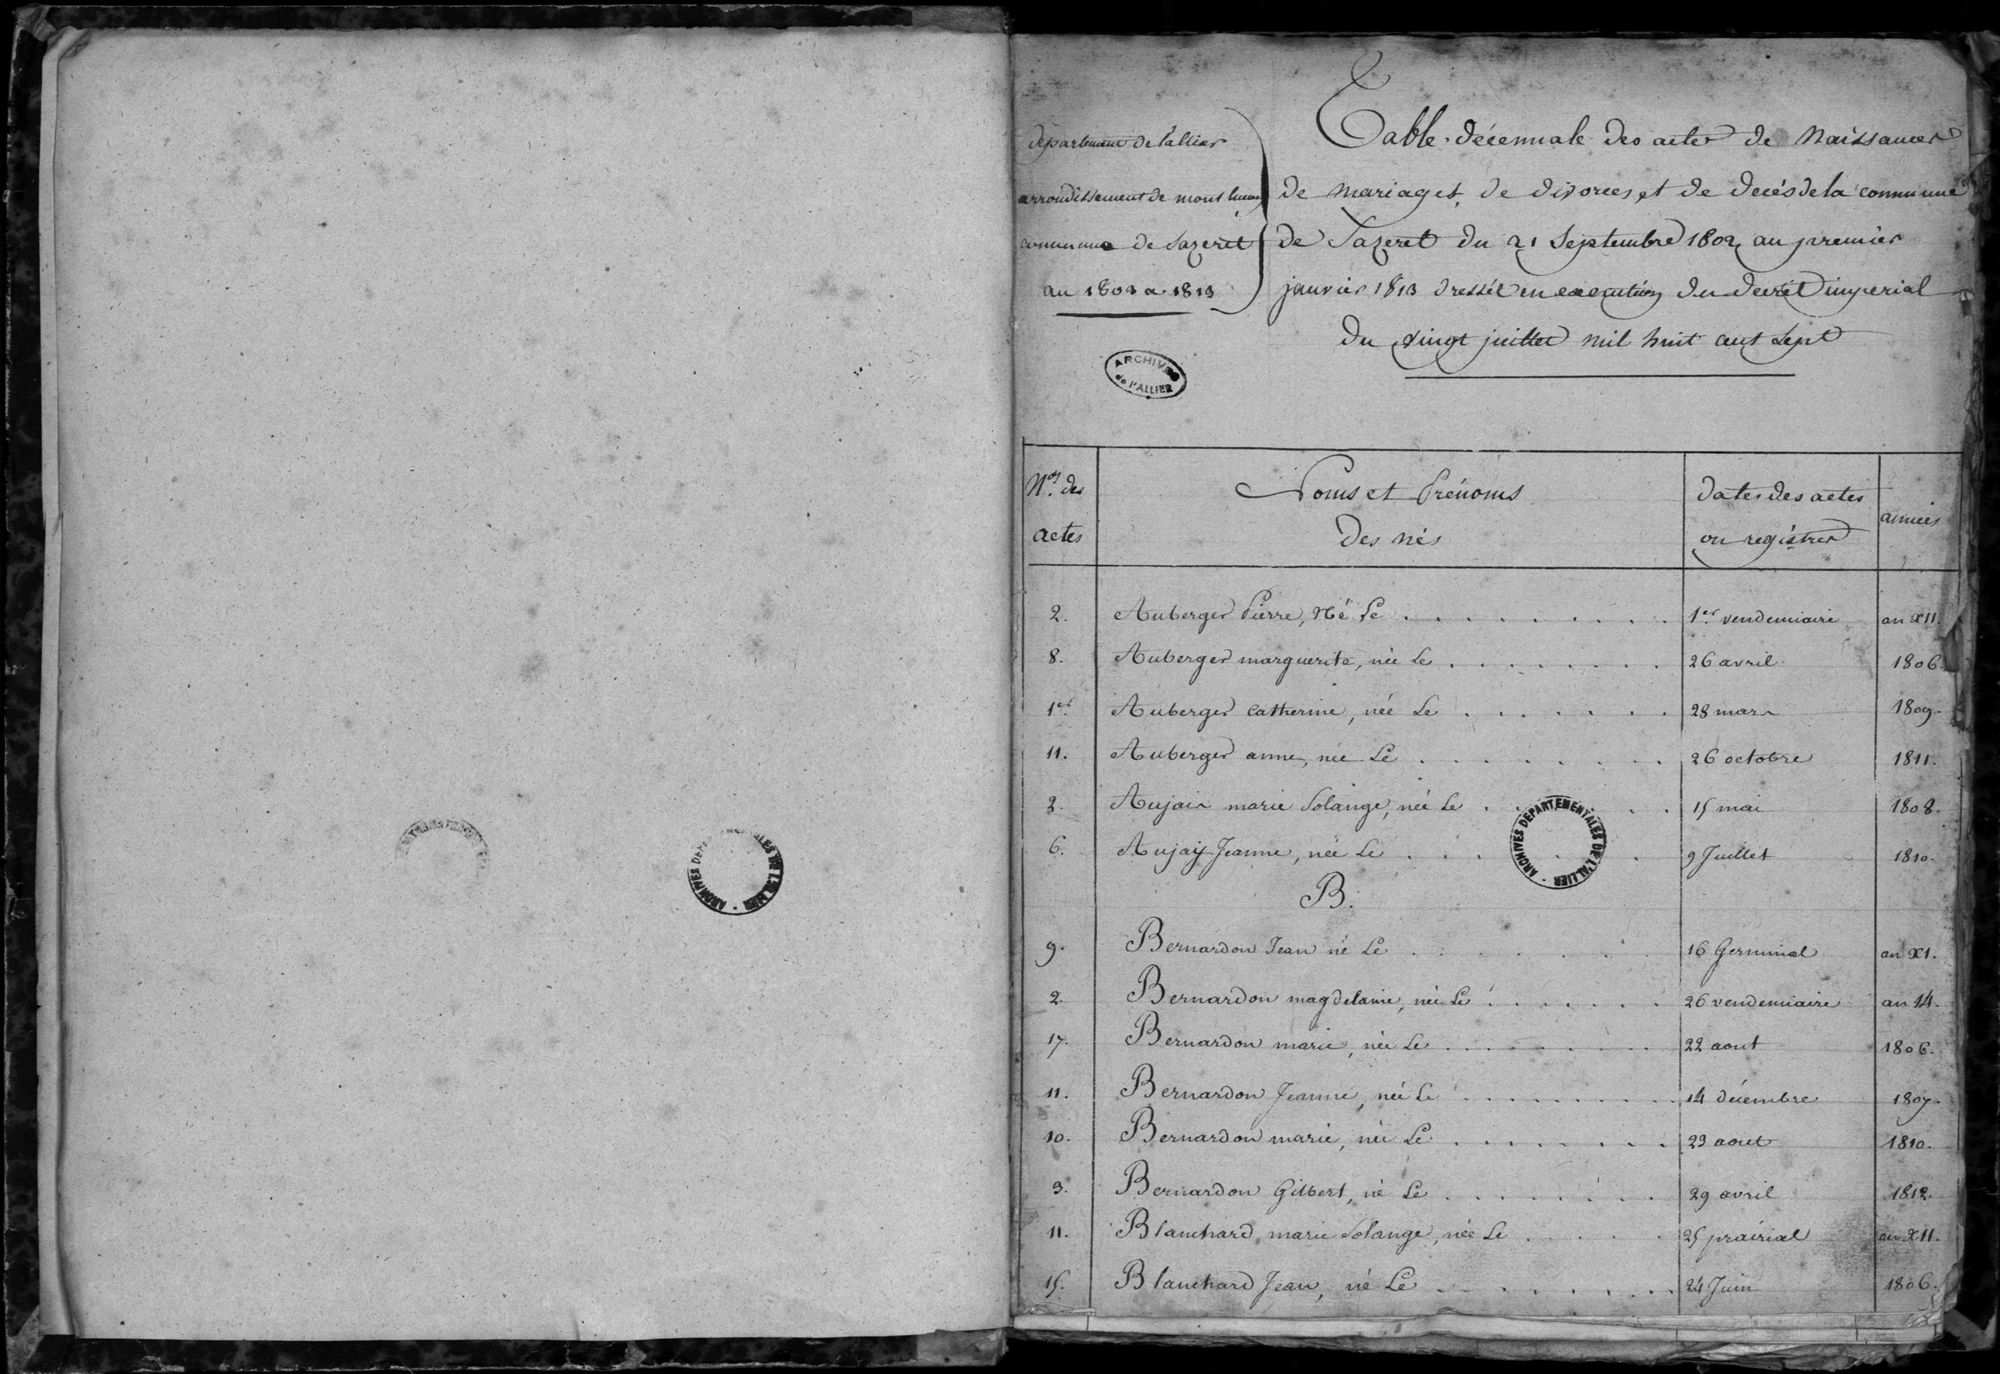 département de l'allier
arrondissement de mont luçon
commune de Sazeret
an 1803 a 1813
Table décennale des actes de Naissances
de mariages, de divorces, et de decés de la commune
de Sazeret du 21 Septembre 1802 au premier
janvier 1813 dressée en execution du decret imperial
du vingt juillet mil huit cent sept
ARCHIVES
de l'ALLIER
Nos des
actes
Noms et Prénoms
des nés
dates des actes
ou registres
années
2. Auberger Pierre, Né Le 1er vendemiaire an XII.
8. Auberger marguerite, née Le 26 avril 1806.
1er Auberger Catherine, née Le 28 mars 1809.
11. Auberger anne, née Le 26 octobre 1811.
8. Aujair marie Solange, née Le 15 mai 1808.
6. Aujay Jeanne, née Le 9 Juillet 1810.
ARCHIVES DÉPARTEMENTALES DE L'ALLIER
ARCHIVES DÉPARTEMENTALES DE L'ALLIER
B.
9. Bernardon Jean né Le 16 Germinal an XI.
2. Bernardon magdelaine, née Le 26 vendemiaire an 14.
17. Bernardon marie, née Le 22 aout 1806.
11. Bernardon Jeanne, née Le 14 décembre 1807.
10. Bernardon marie, née Le 23 aout 1810.
3. Bernardon Gilbert, né Le 29 avril 1812.
11. Blanchard marie Solange, née Le 25 prairial an XII.
15. Blanchard Jean, né Le 24 Juin 1806.